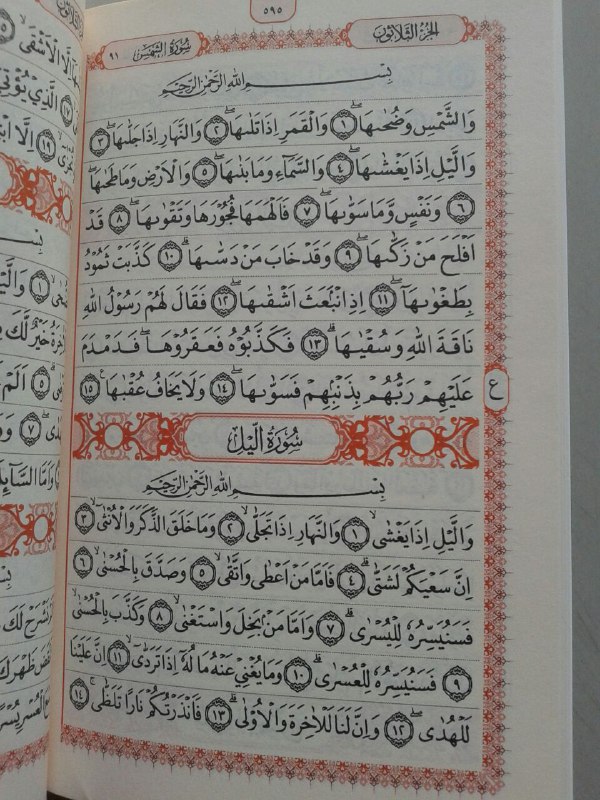 ٥٩٥
الجزء الثلاثون
سورة الشمس ٩١
بسم الله الرحمن الرحيم
وَالشَّمْسِ وَضُحٰىهَا ۖ ١ وَالْقَمَرِ اِذَا تَلٰىهَا ۖ ٢ وَالنَّهَارِ اِذَا جَلّٰىهَا ۖ ٣
وَالَّيْلِ اِذَا يَغْشٰىهَا ۖ ٤ وَالسَّمَاۤءِ وَمَا بَنٰىهَا ۖ ٥ وَالْاَرْضِ وَمَا طَحٰىهَا ۖ
٦ وَنَفْسٍ وَّمَا سَوّٰىهَا ۖ ٧ فَاَلْهَمَهَا فُجُوْرَهَا وَتَقْوٰىهَا ۖ ٨ قَدْ
اَفْلَحَ مَنْ زَكّٰىهَا ۖ ٩ وَقَدْ خَابَ مَنْ دَسّٰىهَا ۗ ١٠ كَذَّبَتْ ثَمُوْدُ
بِطَغْوٰىهَآ ۖ ١١ اِذِ انْۢبَعَثَ اَشْقٰىهَا ۖ ١٢ فَقَالَ لَهُمْ رَسُوْلُ اللّٰهِ
نَاقَةَ اللّٰهِ وَسُقْيٰهَا ۗ ١٣ فَكَذَّبُوْهُ فَعَقَرُوْهَا ۖ فَدَمْدَمَ
عَلَيْهِمْ رَبُّهُمْ بِذَنْۢبِهِمْ فَسَوّٰىهَا ۖ ١٤ وَلَا يَخَافُ عُقْبٰهَا ࣖ ١٥
ع
سورة الّيل
بسم الله الرحمن الرحيم
وَالَّيْلِ اِذَا يَغْشٰى ۙ ١ وَالنَّهَارِ اِذَا تَجَلّٰى ۙ ٢ وَمَا خَلَقَ الذَّكَرَ وَالْاُنْثٰى ۙ ٣
اِنَّ سَعْيَكُمْ لَشَتّٰى ۗ ٤ فَاَمَّا مَنْ اَعْطٰى وَاتَّقٰى ۙ ٥ وَصَدَّقَ بِالْحُسْنٰى ۙ ٦
فَسَنُيَسِّرُهٗ لِلْيُسْرٰى ۗ ٧ وَاَمَّا مَنْۢ بَخِلَ وَاسْتَغْنٰى ۙ ٨ وَكَذَّبَ بِالْحُسْنٰى ۙ
٩ فَسَنُيَسِّرُهٗ لِلْعُسْرٰى ۗ ١٠ وَمَا يُغْنِيْ عَنْهُ مَالُهٗٓ اِذَا تَرَدّٰى ۙ ١١ اِنَّ عَلَيْنَا
لَلْهُدٰى ۖ ١٢ وَاِنَّ لَنَا لَلْاٰخِرَةَ وَالْاُوْلٰى ۗ ١٣ فَاَنْذَرْتُكُمْ نَارًا تَلَظّٰى ۚ ١٤
الثلاثون
اِلَّا الْاَتْقَى
الَّذِيْ يُؤْتِيْ
١٩ اِلَّا
بسم
١ وَالَّيْلِ
خَيْرٌ لَّكَ
٥ اَلَمْ
٧
وَاَمَّا السَّاۤئِلَ
بسم
نَشْرَحْ لَكَ
ظَهْرَكَ
الْعُسْرِ يُسْرًا